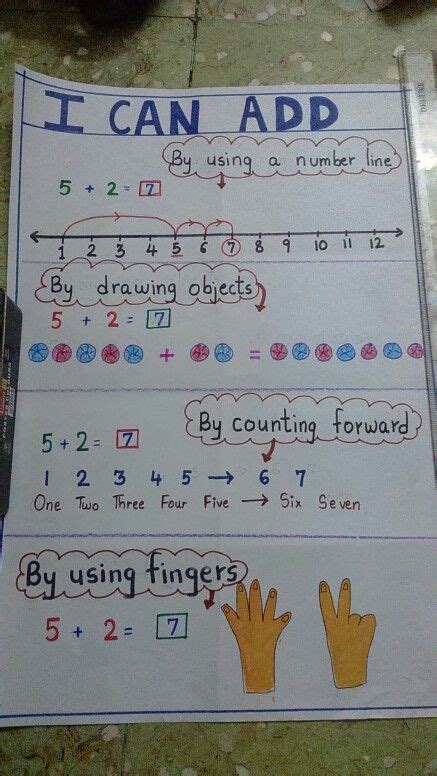 I CAN ADD
By using a number line
5 + 2 = 7
1 2 3 4 5 6 7 8 9 10 11 12
By drawing objects
5 + 2 = 7
+ =
By counting forward
5 + 2 = 7
1 2 3 4 5 → 6 7
One Two Three Four Five → Six Seven
By using fingers
5 + 2 = 7